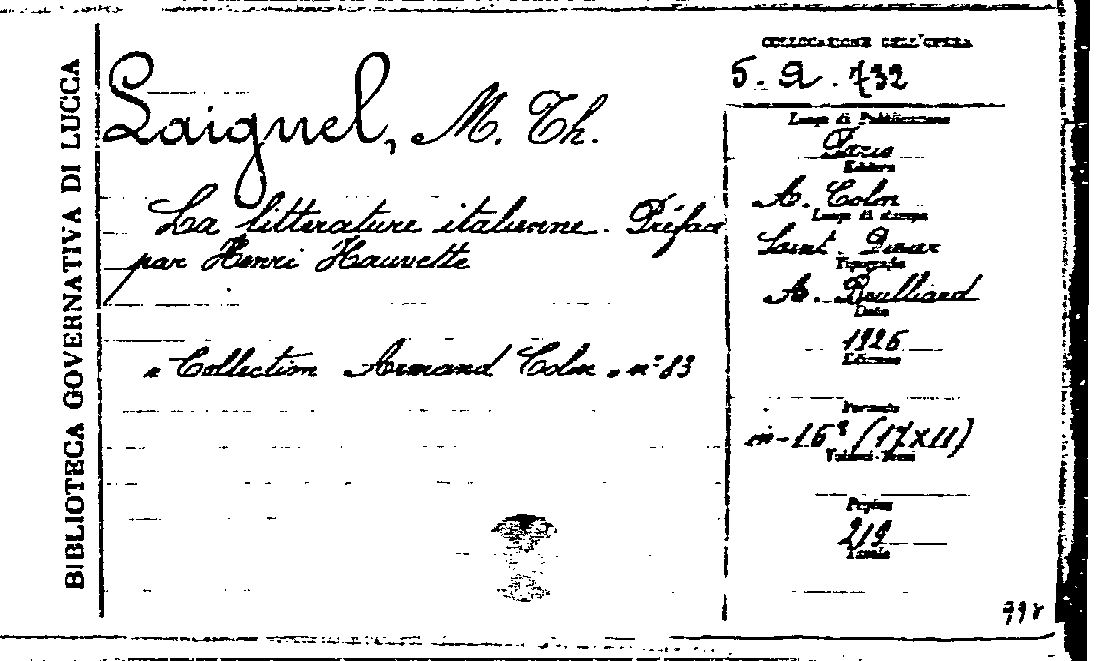 BIBLIOTECA GOVERNATIVA DI LUCCA
Laignel, M. Th.
La littérature italienne. Préface
par Henri Hauvette
« Collection Armand Colin » n° 83
COLLOCAZIONE DELL'OPERA
5. a. 732
Luogo di Pubblicazione
Paris
Editore
A. Colin
Luogo di stampa
Saint
Tipografia
A. Boulliard
Data
1926
Edizione
Formato
in-16° (17x11)
Volumi-Tomi
Pagine
219
Tavole